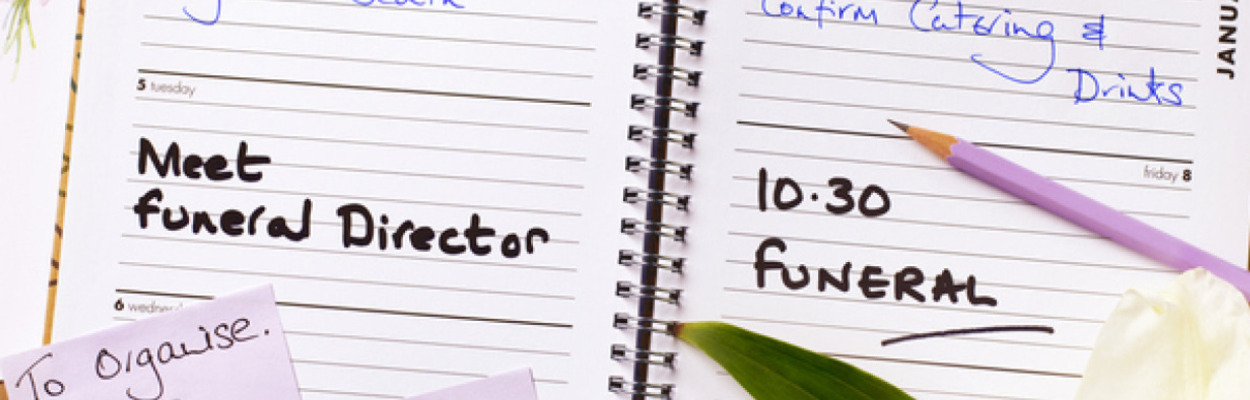 5 tuesday
Meet
funeral Director
6
To Organise.
Confirm Catering &
Drinks
friday 8
10.30
FUNERAL